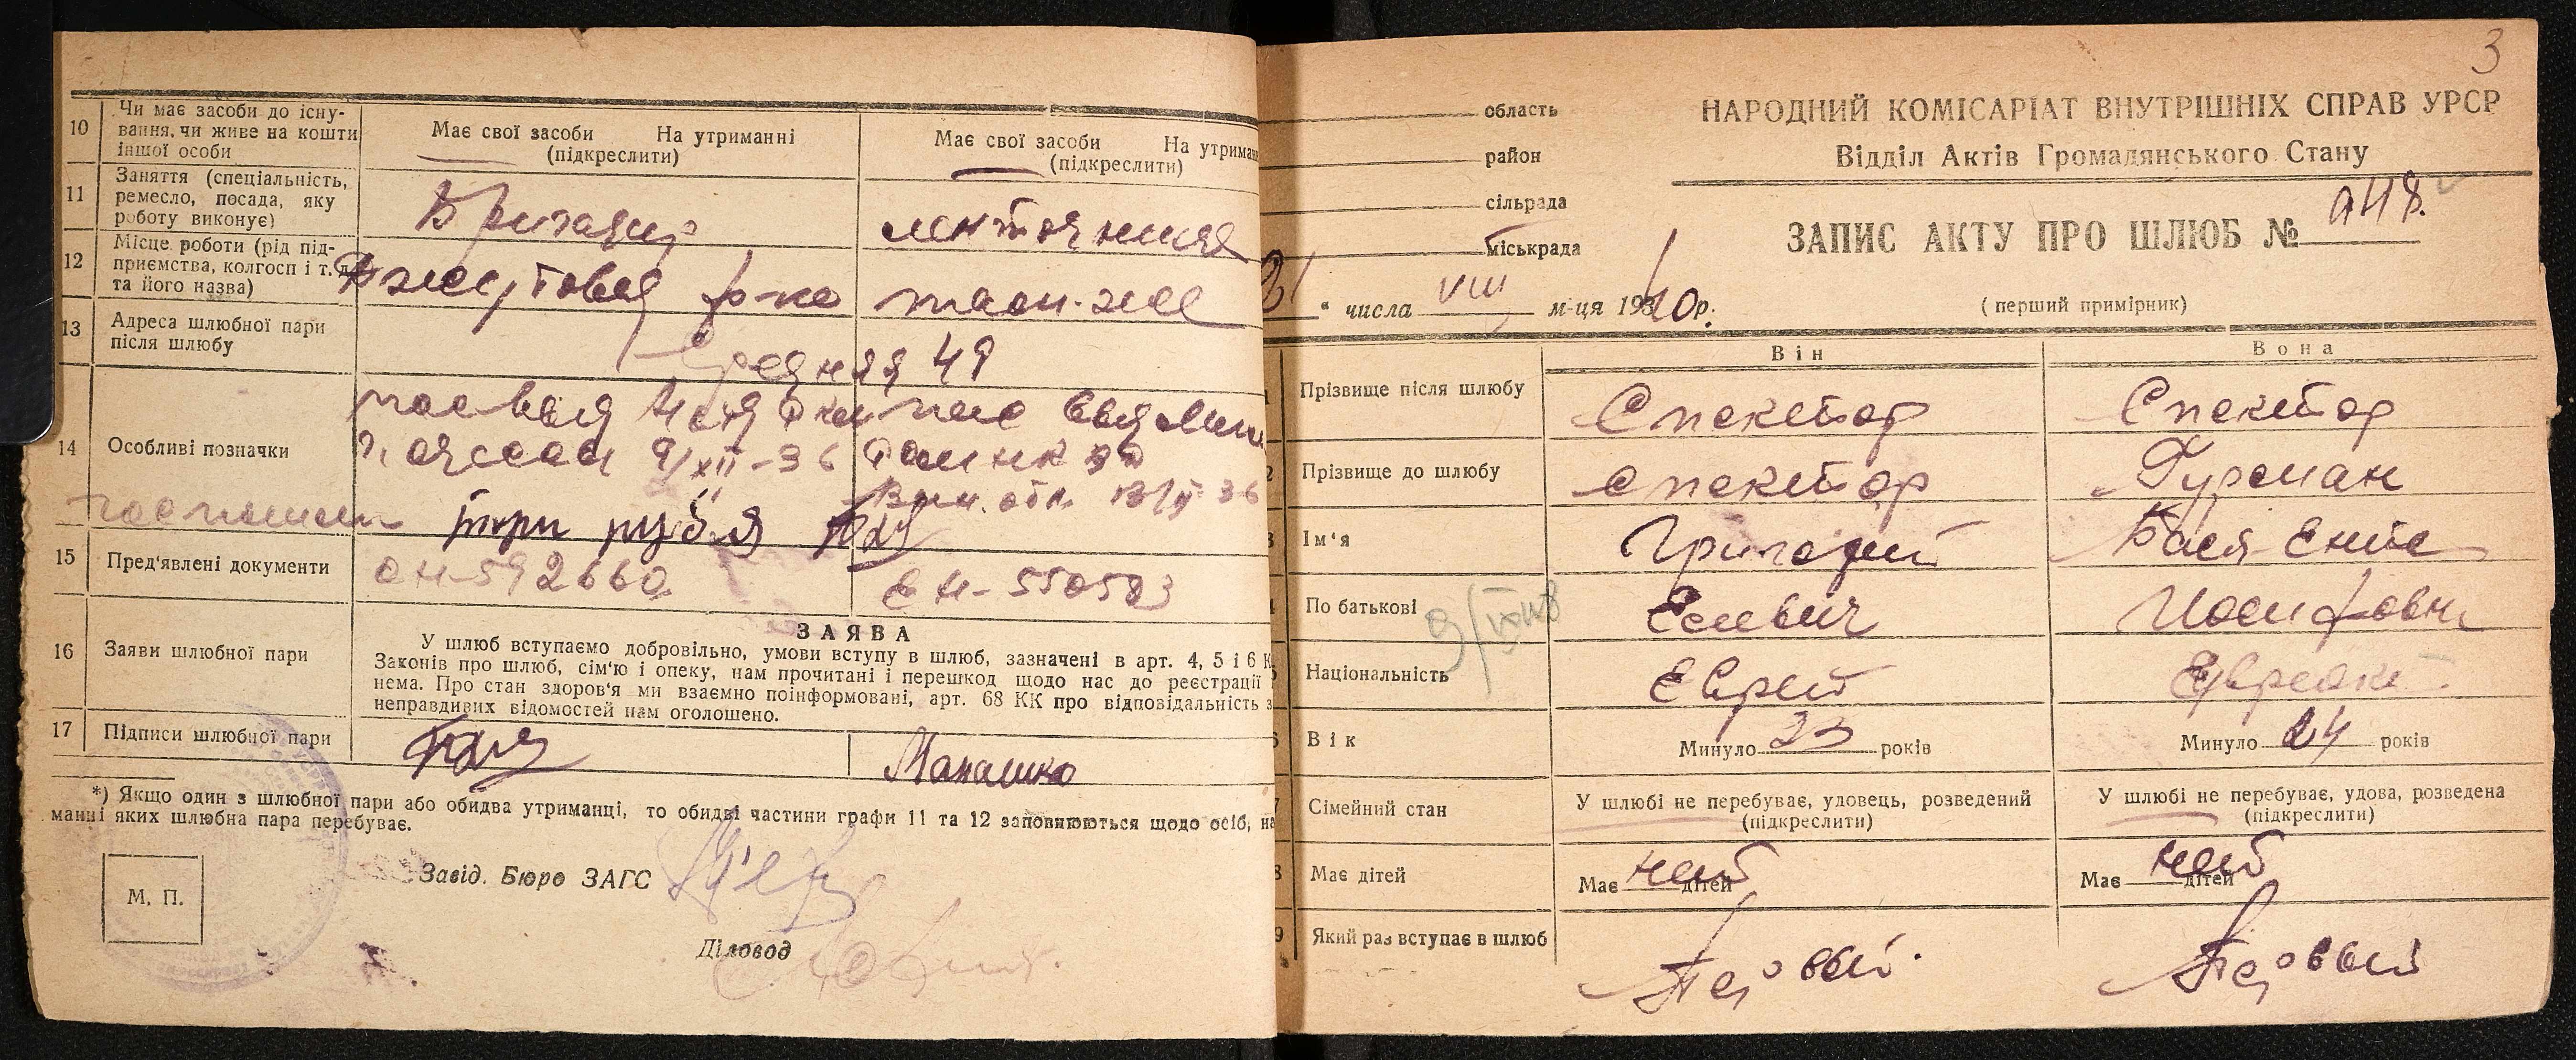 10 Чи має засоби до існу-
вання, чи живе на кошти
іншої особи
Має свої засоби На утриманні
(підкреслити)
Має свої засоби На утриман
(підкреслити)
11 Заняття (спеціальність,
ремесло, посада, яку
роботу виконує)
Бригадир
12 Місце роботи (рід під-
приємства, колгосп і т. д.
та його назва)
Джутовая ф-ка
там-же
13 Адреса шлюбної пари
після шлюбу
Средняя 49
14 Особливі позначки
9/XII-36
три рубля
15 Пред'явлені документи
ОН-592660
ЕН-550583
16 Заяви шлюбної пари
ЗАЯВА
У шлюб вступаємо добровільно, умови вступу в шлюб, зазначені в арт. 4, 5 і 6 К
Законів про шлюб, сім'ю і опеку, нам прочитані і перешкод щодо нас до реєстрації
нема. Про стан здоров'я ми взаємно поінформовані, арт. 68 КК про відповідальність з
неправдивих відомостей нам оголошено.
17 Підписи шлюбної пари
*) Якщо один з шлюбної пари або обидва утриманці, то обидві частини графи 11 та 12 заповнюються щодо осіб, на
манні яких шлюбна пара перебуває.
М. П.
Завід. Бюро ЗАГС
Діловод
3
область
район
сільрада
міськрада
НАРОДНИЙ КОМІСАРІАТ ВНУТРІШНІХ СПРАВ УРСР
Відділ Актів Громадянського Стану
ЗАПИС АКТУ ПРО ШЛЮБ №
(перший примірник)
" числа VIII м-ця 1940 р.
Він
Вона
Прізвище після шлюбу
Спектор
Спектор
Прізвище до шлюбу
Спектор
Гурман
Ім'я
Григорий
Бася-Ентя
По батькові
Иосифовн
Національність
Еврей
Еврейка
Вік
Минуло 23 років
Минуло 24 років
Сімейний стан
У шлюбі не перебуває, удовець, розведений
(підкреслити)
У шлюбі не перебуває, удова, розведена
(підкреслити)
Має дітей
Має нет дітей
Має нет дітей
Який раз вступає в шлюб
Первый.
Первый